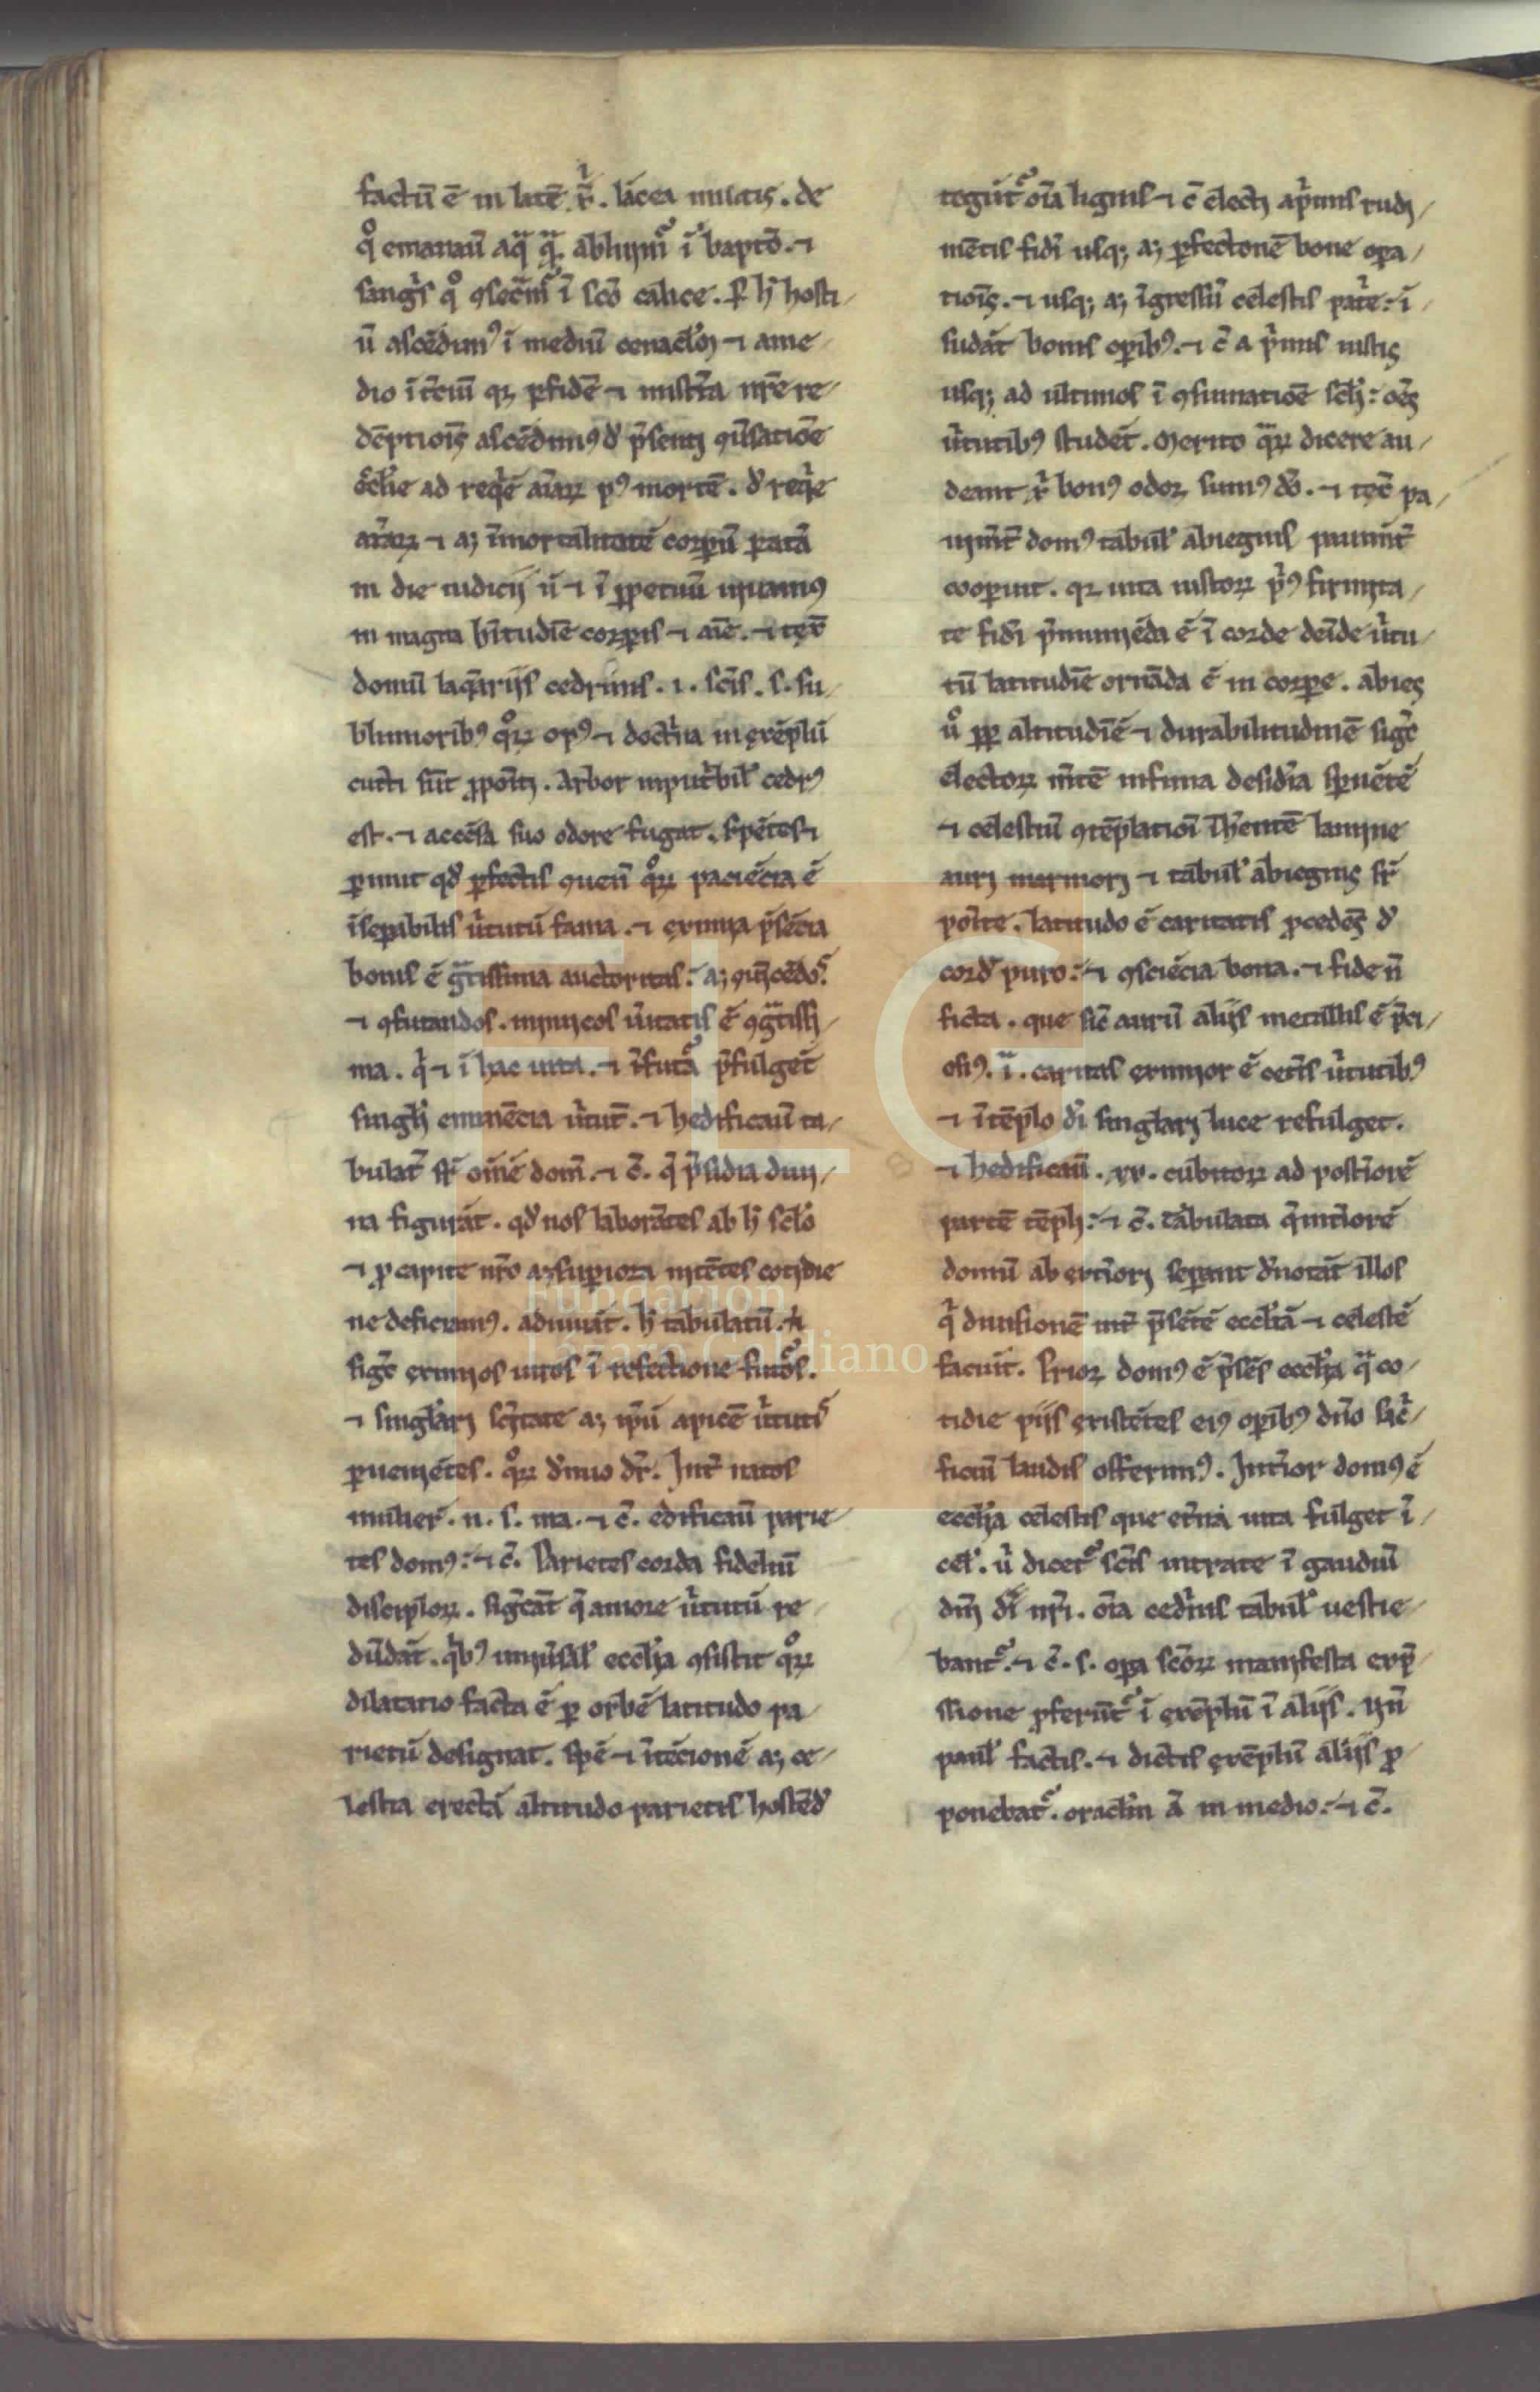 factū ē in latē. xp̄i. lācea militis. de
q° emanaū aqᵃ qᵃ. abluimᷣ ī bapto. ⁊
sangͥs q° ꝯsecͣmᷣ ī scō calice. ꝑ hͨ hosti/
ū ascēdimꝰ ī mediū cenacͣlm ⁊ a me/
dio ī tͨciū qꝛ ꝑ fidē ⁊ mistͥia nr̄e re/
dēptiōis ascēdimꝰ đ pͥsentj ꝯuͥsatiōe
ec̄lie ad reqͥē aīaꝝ pꝰ mortē. đ reqͥe
aīaꝝ ⁊ aꝫ īmortalitatē corꝑū ꝑatā
in die iudicij ū ⁊ ī ꝑpetuū uiuamꝰ
in magna bt̄itudīe corꝑis ⁊ aīe. ⁊ tex̄
domū laqͣrijs cedrinis. i. scīs. s. su/
blimioribꝰ q°ꝝ opꝰ ⁊ doctͥna in exēplū
cūcti sūt ꝓpoīti. Arbor inputͥbilᷤ cedrꝰ
est. ⁊ accēsa suo odore fugat. sꝑētes ⁊
ꝑimit qđ ꝑfectis ꝯuenī q°ꝝ paciēcia ē
īseꝑabilis uͥtutū fama. ⁊ eximia pͥsēcia
bonis ē gͣtissima auctoritas: aꝫ ꝯuīcēdoˢ
⁊ ꝯfutandos. inimicos uͥitatis ē ꝯgͣtissi/
ma. qͥ ⁊ ī hac uita. ⁊ ī futͣa p̄fulgēt
singlͥi eminēcia uͥtut̄. ⁊ hedificaū ta/
bulat̄ sr̄ om̄ē dom̄. ⁊ c̄. qͥ pͥsidia diui/
na figurāt. qđ nos laborātes ab hͨ sclō
⁊ ꝓ capite nr̄o aꝫ superiora nitētes cotidie
ne deficiamꝰ. adiuuāt. hͨ tabulatū.
sigͨ eximios uiros ī refectione
⁊ singlͣarj scͥitate aꝫ ipͥū apicē uͥtutiˢ
ꝑueniētes. q°ꝝ đ uno dr̄. Int̄ natos
mulieꝝ. n. s. ma. ⁊ c̄. edificaū parie/
tes domꝰ: ⁊ c̄. Parietes corda fideliū
discipͥloꝝ. sigͨcāt qͥ amore uͥtutū re/
dūdāt. qͥbꝰ uniuͥsalᷤ eccl̄ia ꝯsistit q°ꝝ
dilatatio facta ē ꝑ orbē latitudo pa/
rietū designat. spē ⁊ ītēcionē aꝫ ce/
lestia erectā altitudo parietis hostēđ
tegūtᷣ oīa lignis ⁊ c̄ electj a pͥmis rudj/
mētis fidī usqꝫ aꝫ ꝑfectonē bone oꝑa/
tiōis. ⁊ usqꝫ aꝫ īgressū celestis patͥe: ī/
sudāt bonis oꝑibꝰ. ⁊ c̄ a pͥmis iustis
usqꝫ ad ultimos ī ꝯsumatiōe sclͥi: oēs
uͥtutibꝰ studēt. Merito qᵃꝝ dicere au/
deant xp̄i bonꝰ odoꝛ sumꝰ dō. ⁊ tex̄ pa/
uimt̄ domꝰ tabulᷤ abiegnis
cooꝑuit. qꝛ uita iustoꝝ pͥꝰ firmita/
te fidī pͥmuniēda ē ī corde deīde uͥtu/
tū latitudīe ornāda ē in corꝑe. abies
ů ꝓꝑ altitudīē ⁊ durabilitudinē sigͨ
electoꝝ m̄tē infima desidͥia sꝑnētē
⁊ celestiū ꝯtēplatioī īhͥentē lamine
aurj marmorj ⁊ tabulᷤ abiegnis sr̄
poīte. latitudo ē caritatis ꝓcedēs đ
corđ puro: ⁊ ꝯsciēcia bona. ⁊ fide n̄
ficta. que sic̄ aurū alijs metallis ē p̄ci/
osiꝰ. iͣ. caritas eximior ē cetͥis uͥtutibꝰ
⁊ ī tēplo dī singlarj luce refulget.
⁊ hedificaū. xx. cubitoꝝ ad postͥiorē
partē tēpli: ⁊ c̄. tabulata qͥ intͥiorē
domū ab extͥiorj seꝑant đnotāt illos
qͥ diuisionē int̄ pͥsētē eccl̄iā ⁊ celestē
faciūt. Prioꝛ domꝰ ē pͥsēs eccl̄ia qᵃ co/
tidie piis existētes eiꝰ oꝑibꝰ dn̄o sacͥ/
ficiū laudis offerimꝰ. Intͥior domꝰ ē
eccl̄ia celestis que et̄na uita fulget ī/
cel̄. ů dicetᷣ scīs intrate ī gaudiū
dn̄j dī nr̄i. oīa cedͥnis tabulᷤ uestie/
bantᷣ. ⁊ c̄. s. oꝑa scōꝝ manifesta exp̄/
ssione ꝓferūtᷣ ī exēplū ī alijs. Un̄
paulᷤ factis. ⁊ dictis exēplū alijs ꝓ/
ponebatᷣ. oraclͫm ā in medio: ⁊ c̄.
Fundación
Lázaro Galdiano
FLG